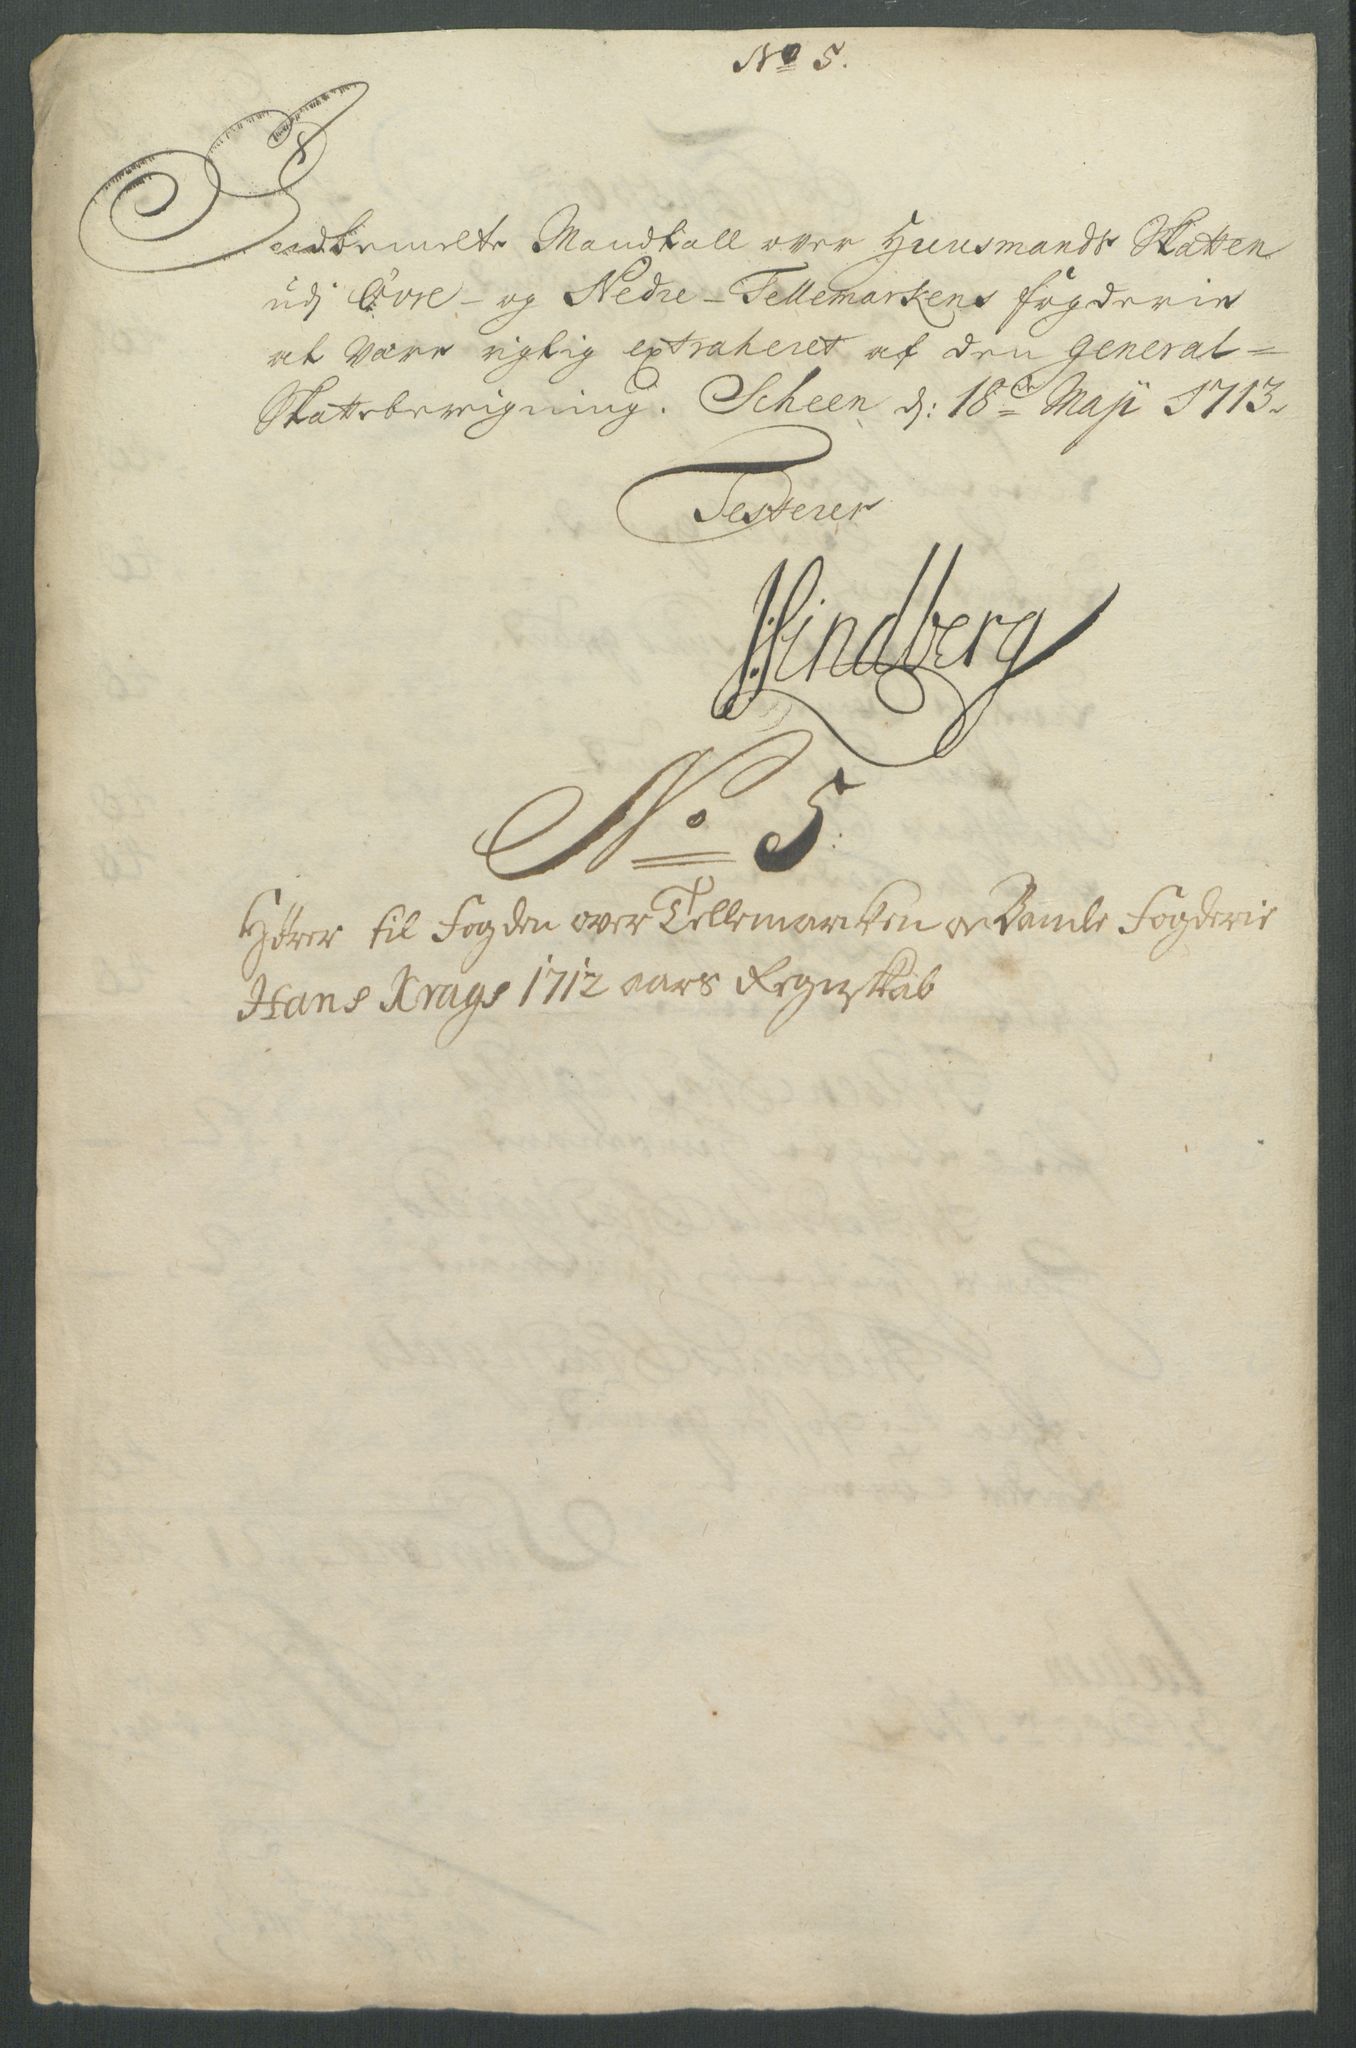 No 5.
Indbemelte Mandtall over Huusmands Skatten
udj Øvre- og Nedre-Tellemarkens fogderie
at være rigtig extraheret af den general-
Skattebereigning. Scheen d: 18de Maji 1713.
Testerer
HLindberg
No 5.
Hører til Fogden over Tellemarcken oc Bamle Fogderie
Hans Krags 1712 aars Regnskab